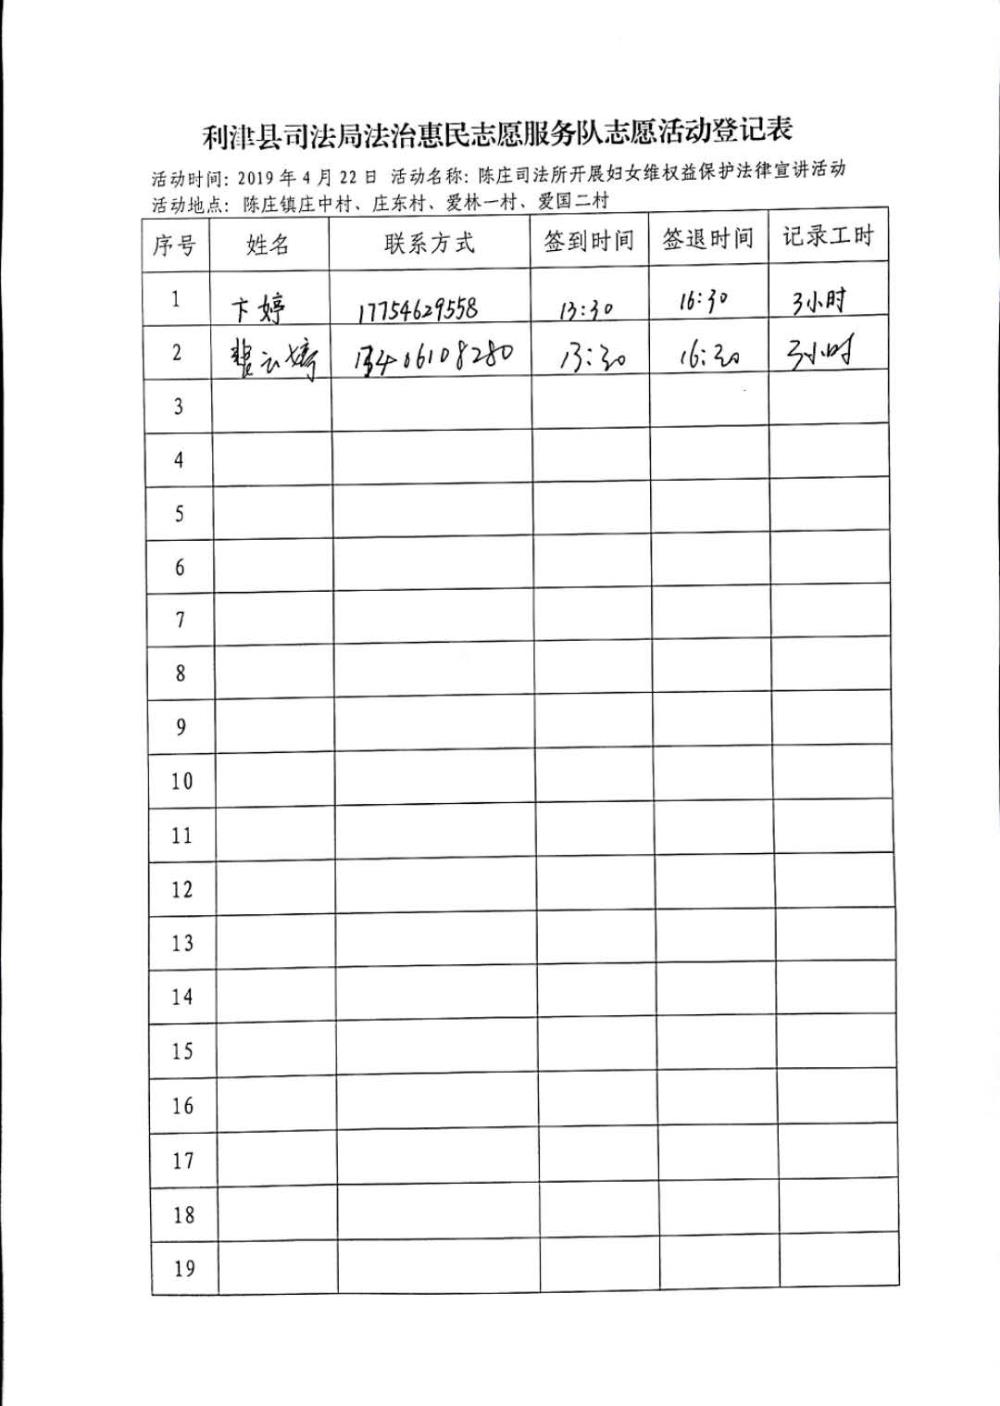 利津县司法局法治惠民志愿服务队志愿活动登记表
活动时间: 2019 年 4 月 22 日 活动名称: 陈庄司法所开展妇女维权益保护法律宣讲活动
活动地点: 陈庄镇庄中村、庄东村、爱林一村、爱国二村
序号 姓名 联系方式 签到时间 签退时间 记录工时
1 卞婷 17754629558 13:30 16:30 3小时
2 13406108280 13:30 16:30 3小时
3
4
5
6
7
8
9
10
11
12
13
14
15
16
17
18
19